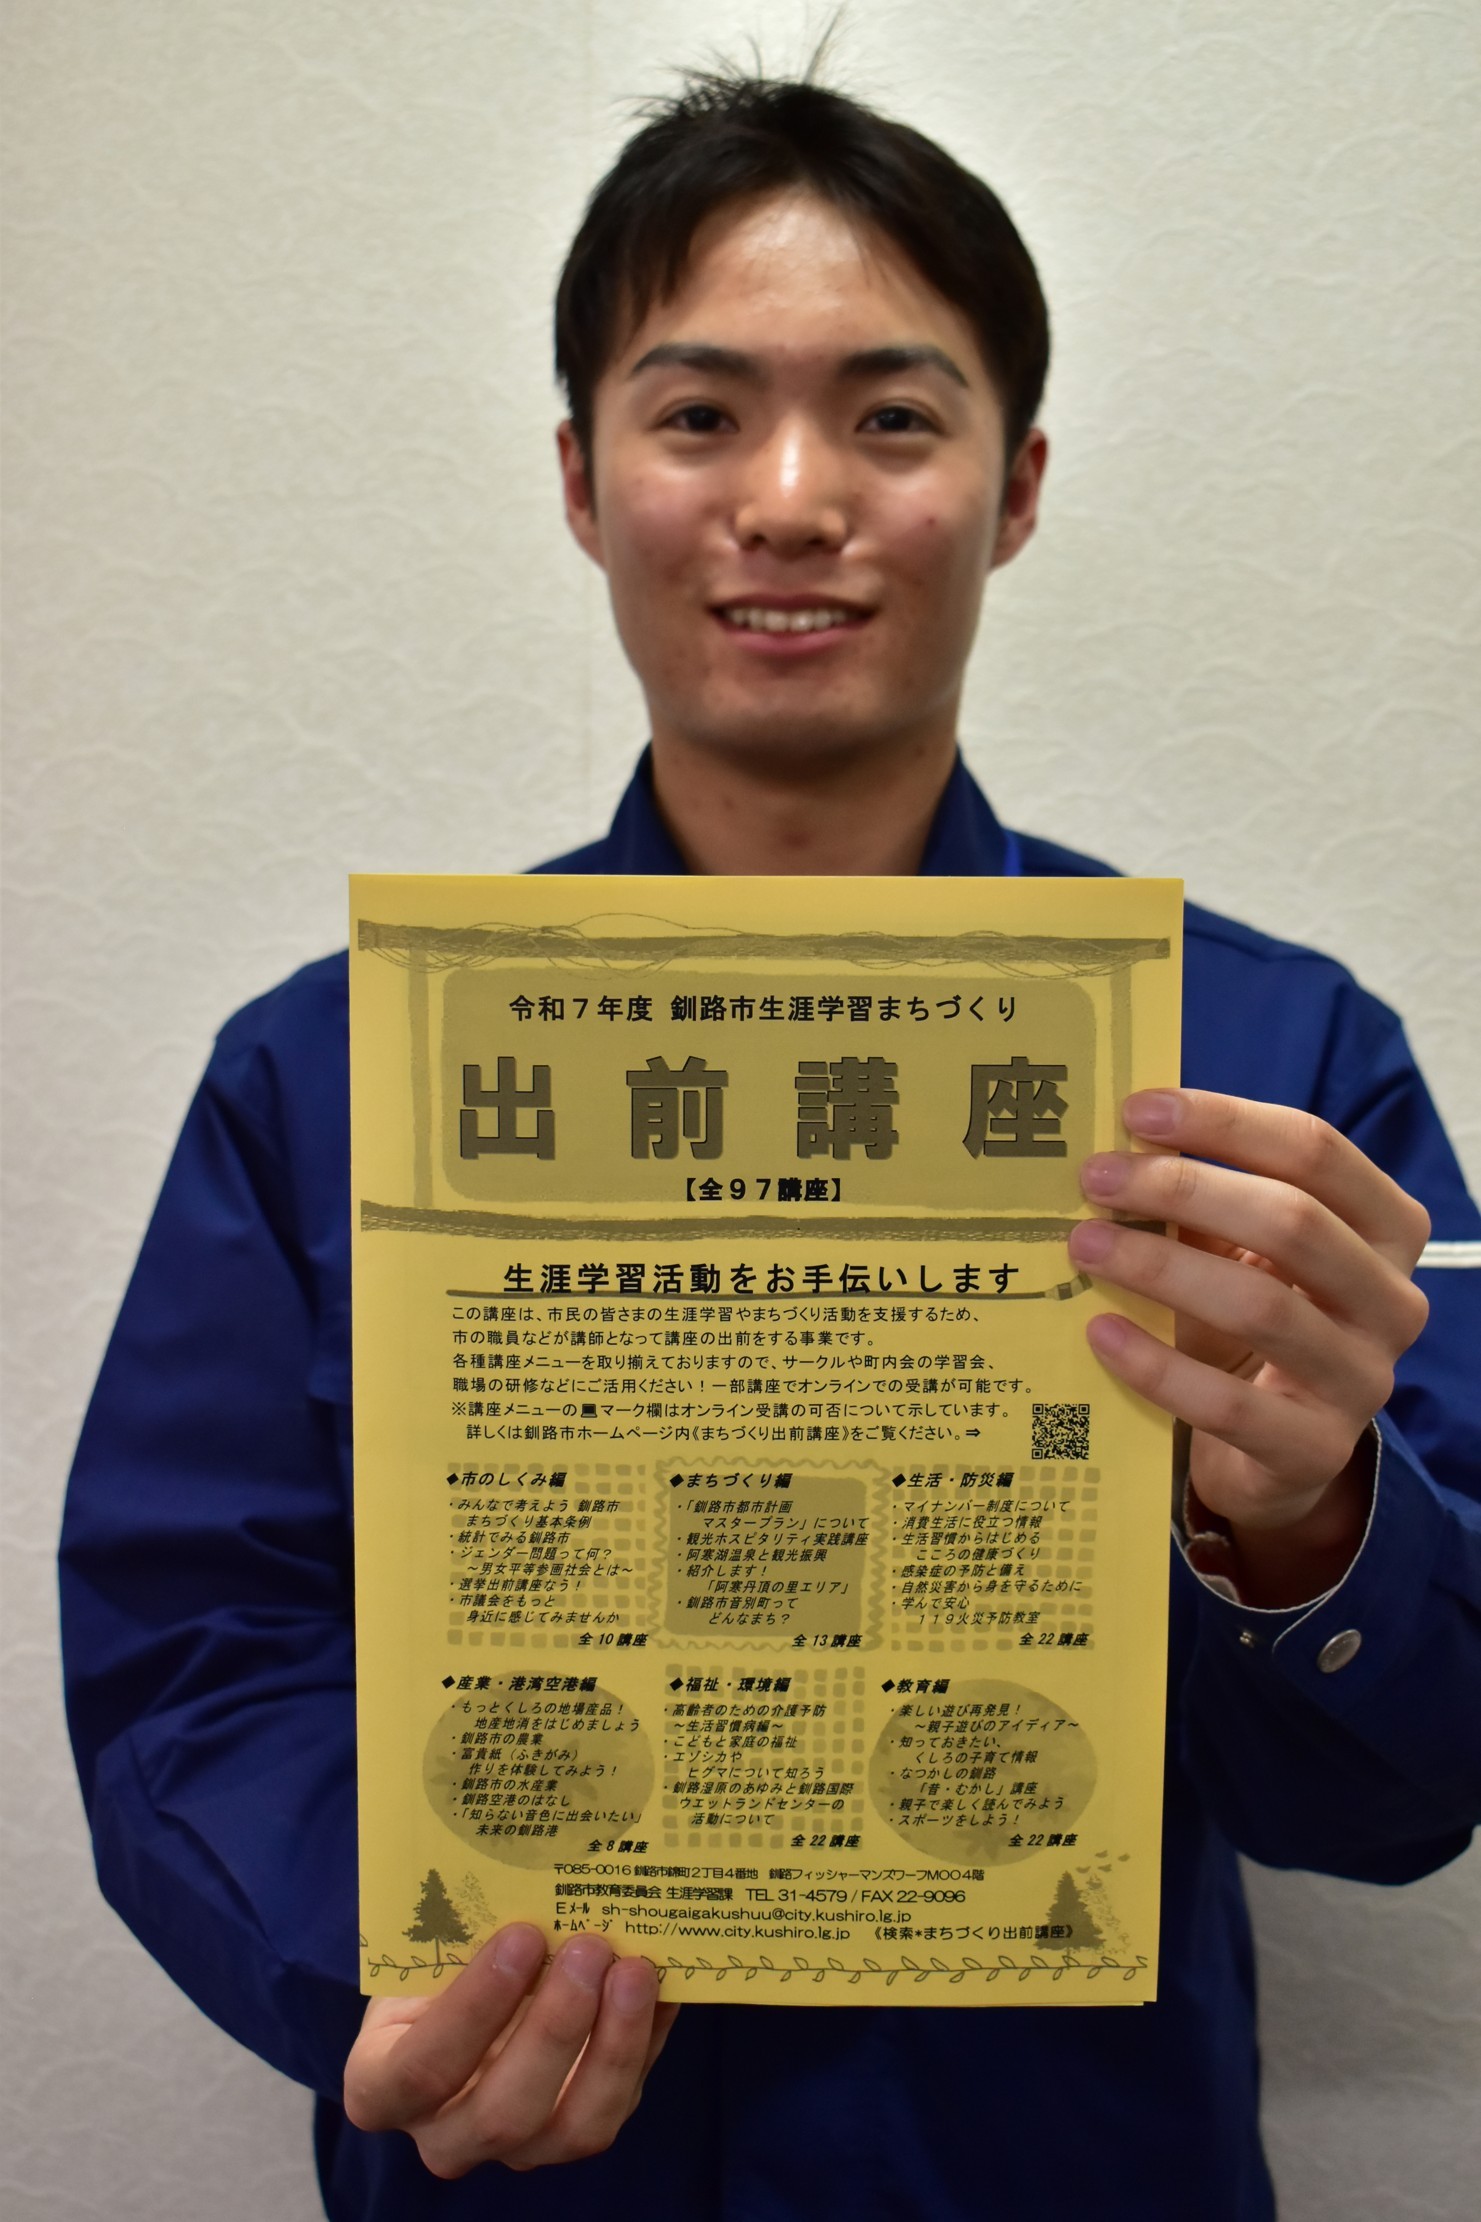 令和７年度 釧路市生涯学習まちづくり
出前講座
【全９７講座】
生涯学習活動をお手伝いします
この講座は、市民の皆さまの生涯学習やまちづくり活動を支援するため、
市の職員などが講師となって講座の出前をする事業です。
各種講座メニューを取り揃えておりますので、サークルや町内会の学習会、
職場の研修などにご活用ください！一部講座でオンラインでの受講が可能です。
※講座メニューの💻マーク欄はオンライン受講の可否について示しています。
詳しくは釧路市ホームページ内《まちづくり出前講座》をご覧ください。⇒
◆市のしくみ編
・みんなで考えよう 釧路市
まちづくり基本条例
・統計でみる釧路市
・ジェンダー問題って何？
～男女平等参画社会とは～
・選挙出前講座なう！
・市議会をもっと
身近に感じてみませんか
全10講座
◆まちづくり編
・「釧路市都市計画
マスタープラン」について
・観光ホスピタリティ実践講座
・阿寒湖温泉と観光振興
・紹介します！
「阿寒丹頂の里エリア」
・釧路市音別町って
どんなまち？
全13講座
◆生活・防災編
・マイナンバー制度について
・消費生活に役立つ情報
・生活習慣からはじめる
こころの健康づくり
・感染症の予防と備え
・自然災害から身を守るために
・学んで安心
１１９火災予防教室
全22講座
◆産業・港湾空港編
・もっとくしろの地場産品！
地産地消をはじめましょう
・釧路市の農業
・富貴紙（ふきがみ）
作りを体験してみよう！
・釧路市の水産業
・釧路空港のはなし
・「知らない音色に出会いたい」
未来の釧路港
全8講座
◆福祉・環境編
・高齢者のための介護予防
～生活習慣病編～
・こどもと家庭の福祉
・エゾシカや
ヒグマについて知ろう
・釧路湿原のあゆみと釧路国際
ウエットランドセンターの
活動について
全22講座
◆教育編
・楽しい遊び再発見！
～親子遊びのアイディア～
・知っておきたい、
くしろの子育て情報
・なつかしの釧路
「昔・むかし」講座
・親子で楽しく読んでみよう
・スポーツをしよう！
全22講座
〒085-0016 釧路市錦町２丁目４番地 釧路フィッシャーマンズワーフＭＯＯ４階
釧路市教育委員会 生涯学習課 TEL 31-4579 / FAX 22-9096
Ｅﾒｰﾙ sh-shougaigakushuu@city.kushiro.lg.jp
ﾎｰﾑﾍﾟｰｼﾞ http://www.city.kushiro.lg.jp 《検索*まちづくり出前講座》